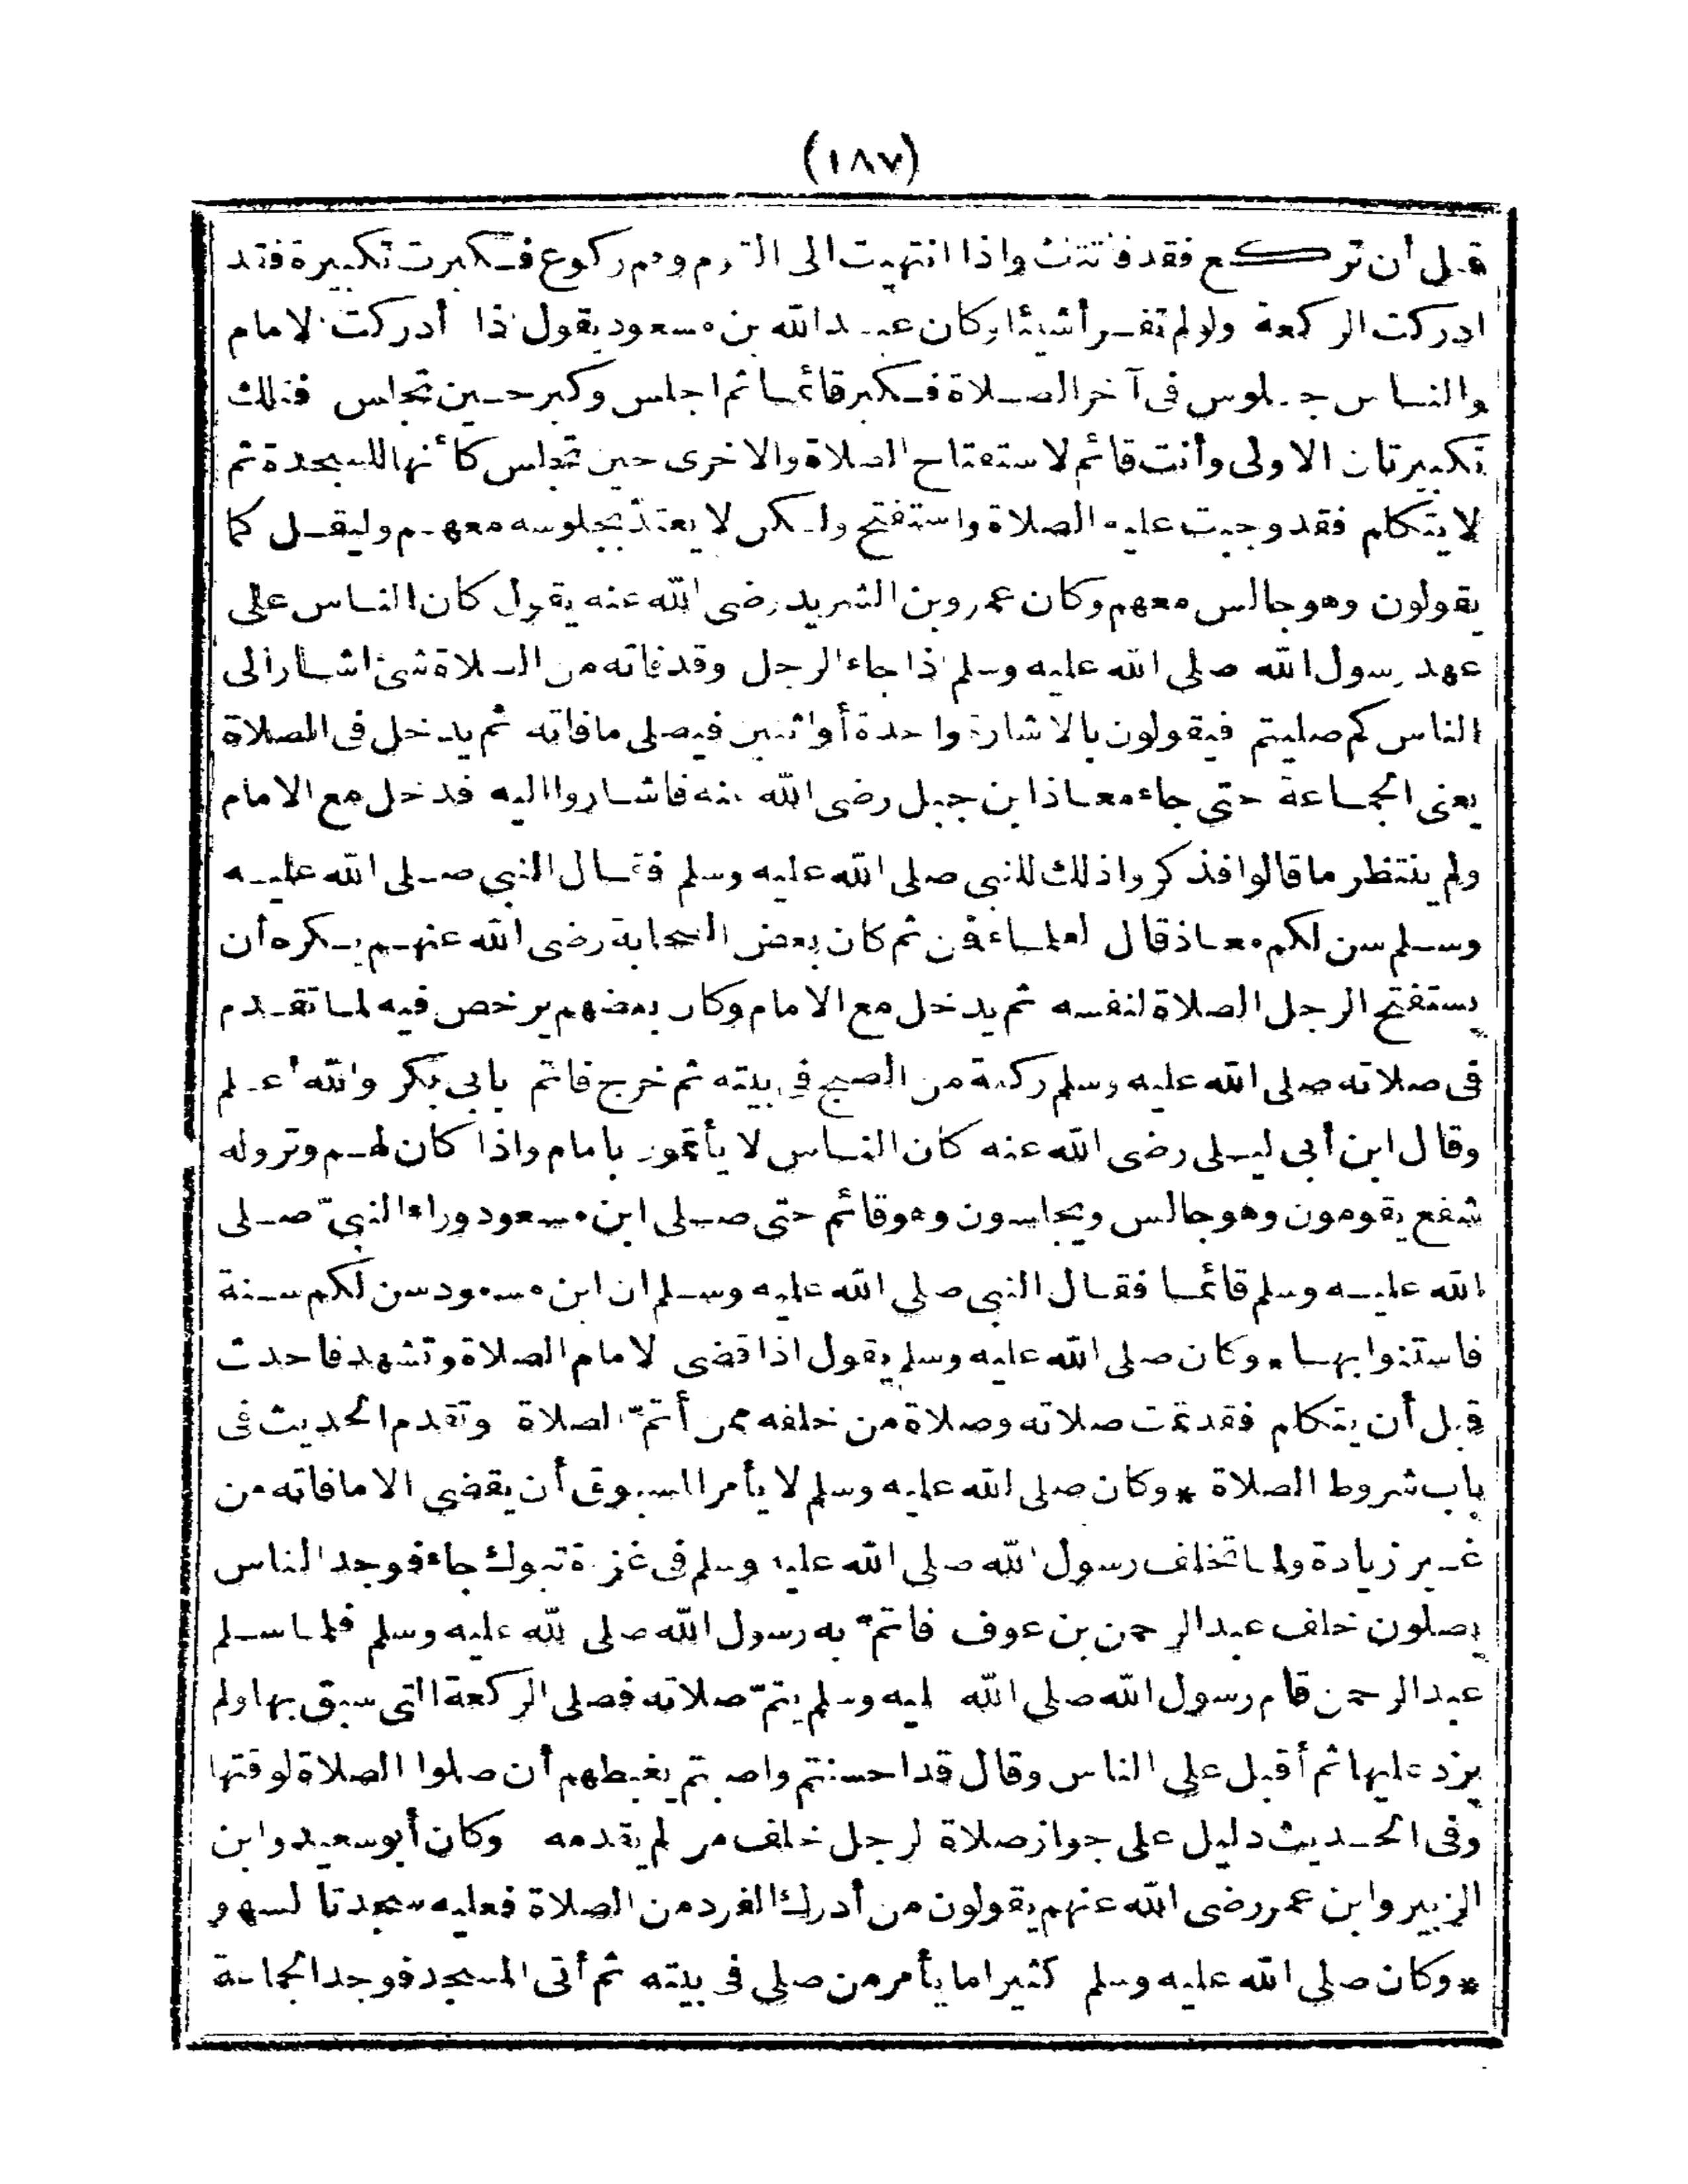 (١٨٧)
قبل أن تركع فقد فاتتك واذا انتهيت الى القوم وهم ركوع فكبرت تكبيرة فقد
ادركت الركعة ولو لم تقرأ شيئا وكان عبد الله بن مسعود يقول اذا أدركت الامام
والناس جلوس فى آخر الصلاة فكبر قائما ثم اجلس وكبر حين تجلس فتلك
تكبيرتان الاولى وأنت قائم لاستفتاح الصلاة والاخرى حين تجلس كأنها للسجدة ثم
لا يتكلم فقد وجبت عليه الصلاة واستفتح ولكن لا يعتدّ بجلوسه معهم وليقل كما
يقولون وهو جالس معهم وكان عمرو بن الشريد رضى الله عنه يقول كان الناس على
عهد رسول الله صلى الله عليه وسلم اذا جاء الرجل وقد فاته من الصلاة شئ اشار الى
الناس كم صليتم فيقولون بالاشارة واحدة أو اثنين فيصلى ما فاته ثم يدخل فى الصلاة
يعنى الجماعة حتى جاء معاذ ابن جبل رضى الله عنه فاشاروا اليه فدخل مع الامام
ولم ينتظر ما قالوا فذكروا ذلك للنبى صلى الله عليه وسلم فقال النبي صلى الله عليه
وسلم سن لكم معاذ قال العلماء فمن ثم كان بعض الصحابة رضى الله عنهم يكره أن
يستفتح الرجل الصلاة لنفسه ثم يدخل مع الامام وكان بعضهم يرخص فيه لما تقدم
فى صلاته صلى الله عليه وسلم ركعة من الصبح فى بيته ثم خرج فاتم بابى بكر والله أعلم
وقال ابن أبى ليلى رضى الله عنه كان الناس لا يأتمون بامام واذا كان لهم وتر وله
شفع يقومون وهو جالس ويجلسون وهو قائم حتى صلى ابن مسعود وراء النبىّ صلى
الله عليه وسلم قائما فقال النبى صلى الله عليه وسلم ان ابن مسعود سن لكم سنة
فاستنوا بها * وكان صلى الله عليه وسلم يقول اذا قضى الامام الصلاة وتشهد فاحدث
قبل أن يتكلم فقد تمت صلاته وصلاة من خلفه ممن أتمّ الصلاة وتقدم الحديث فى
باب شروط الصلاة * وكان صلى الله عليه وسلم لا يأمر المسبوق أن يقضى الا ما فاته من
غير زيادة ولما تخلف رسول الله صلى الله عليه وسلم فى غزوة تبوك جاء فوجد الناس
يصلون خلف عبد الرحمن بن عوف فاتمّ به رسول الله صلى الله عليه وسلم فلما سلم
عبد الرحمن قام رسول الله صلى الله عليه وسلم يتمّ صلاته فصلى الركعة التى سبق بها ولم
يزد عليها ثم أقبل على الناس وقال قد احسنتم واصبتم يغبطهم أن صلوا الصلاة لوقتها
وفى الحديث دليل على جواز صلاة الرجل خلف من لم يقدمه وكان أبو سعيد وابن
الزبير وابن عمر رضى الله عنهم يقولون من أدرك الفرد من الصلاة فعليه سجدتا السهو
* وكان صلى الله عليه وسلم كثيرا ما يأمر من صلى فى بيته ثم أتى المسجد فوجد الجماعة